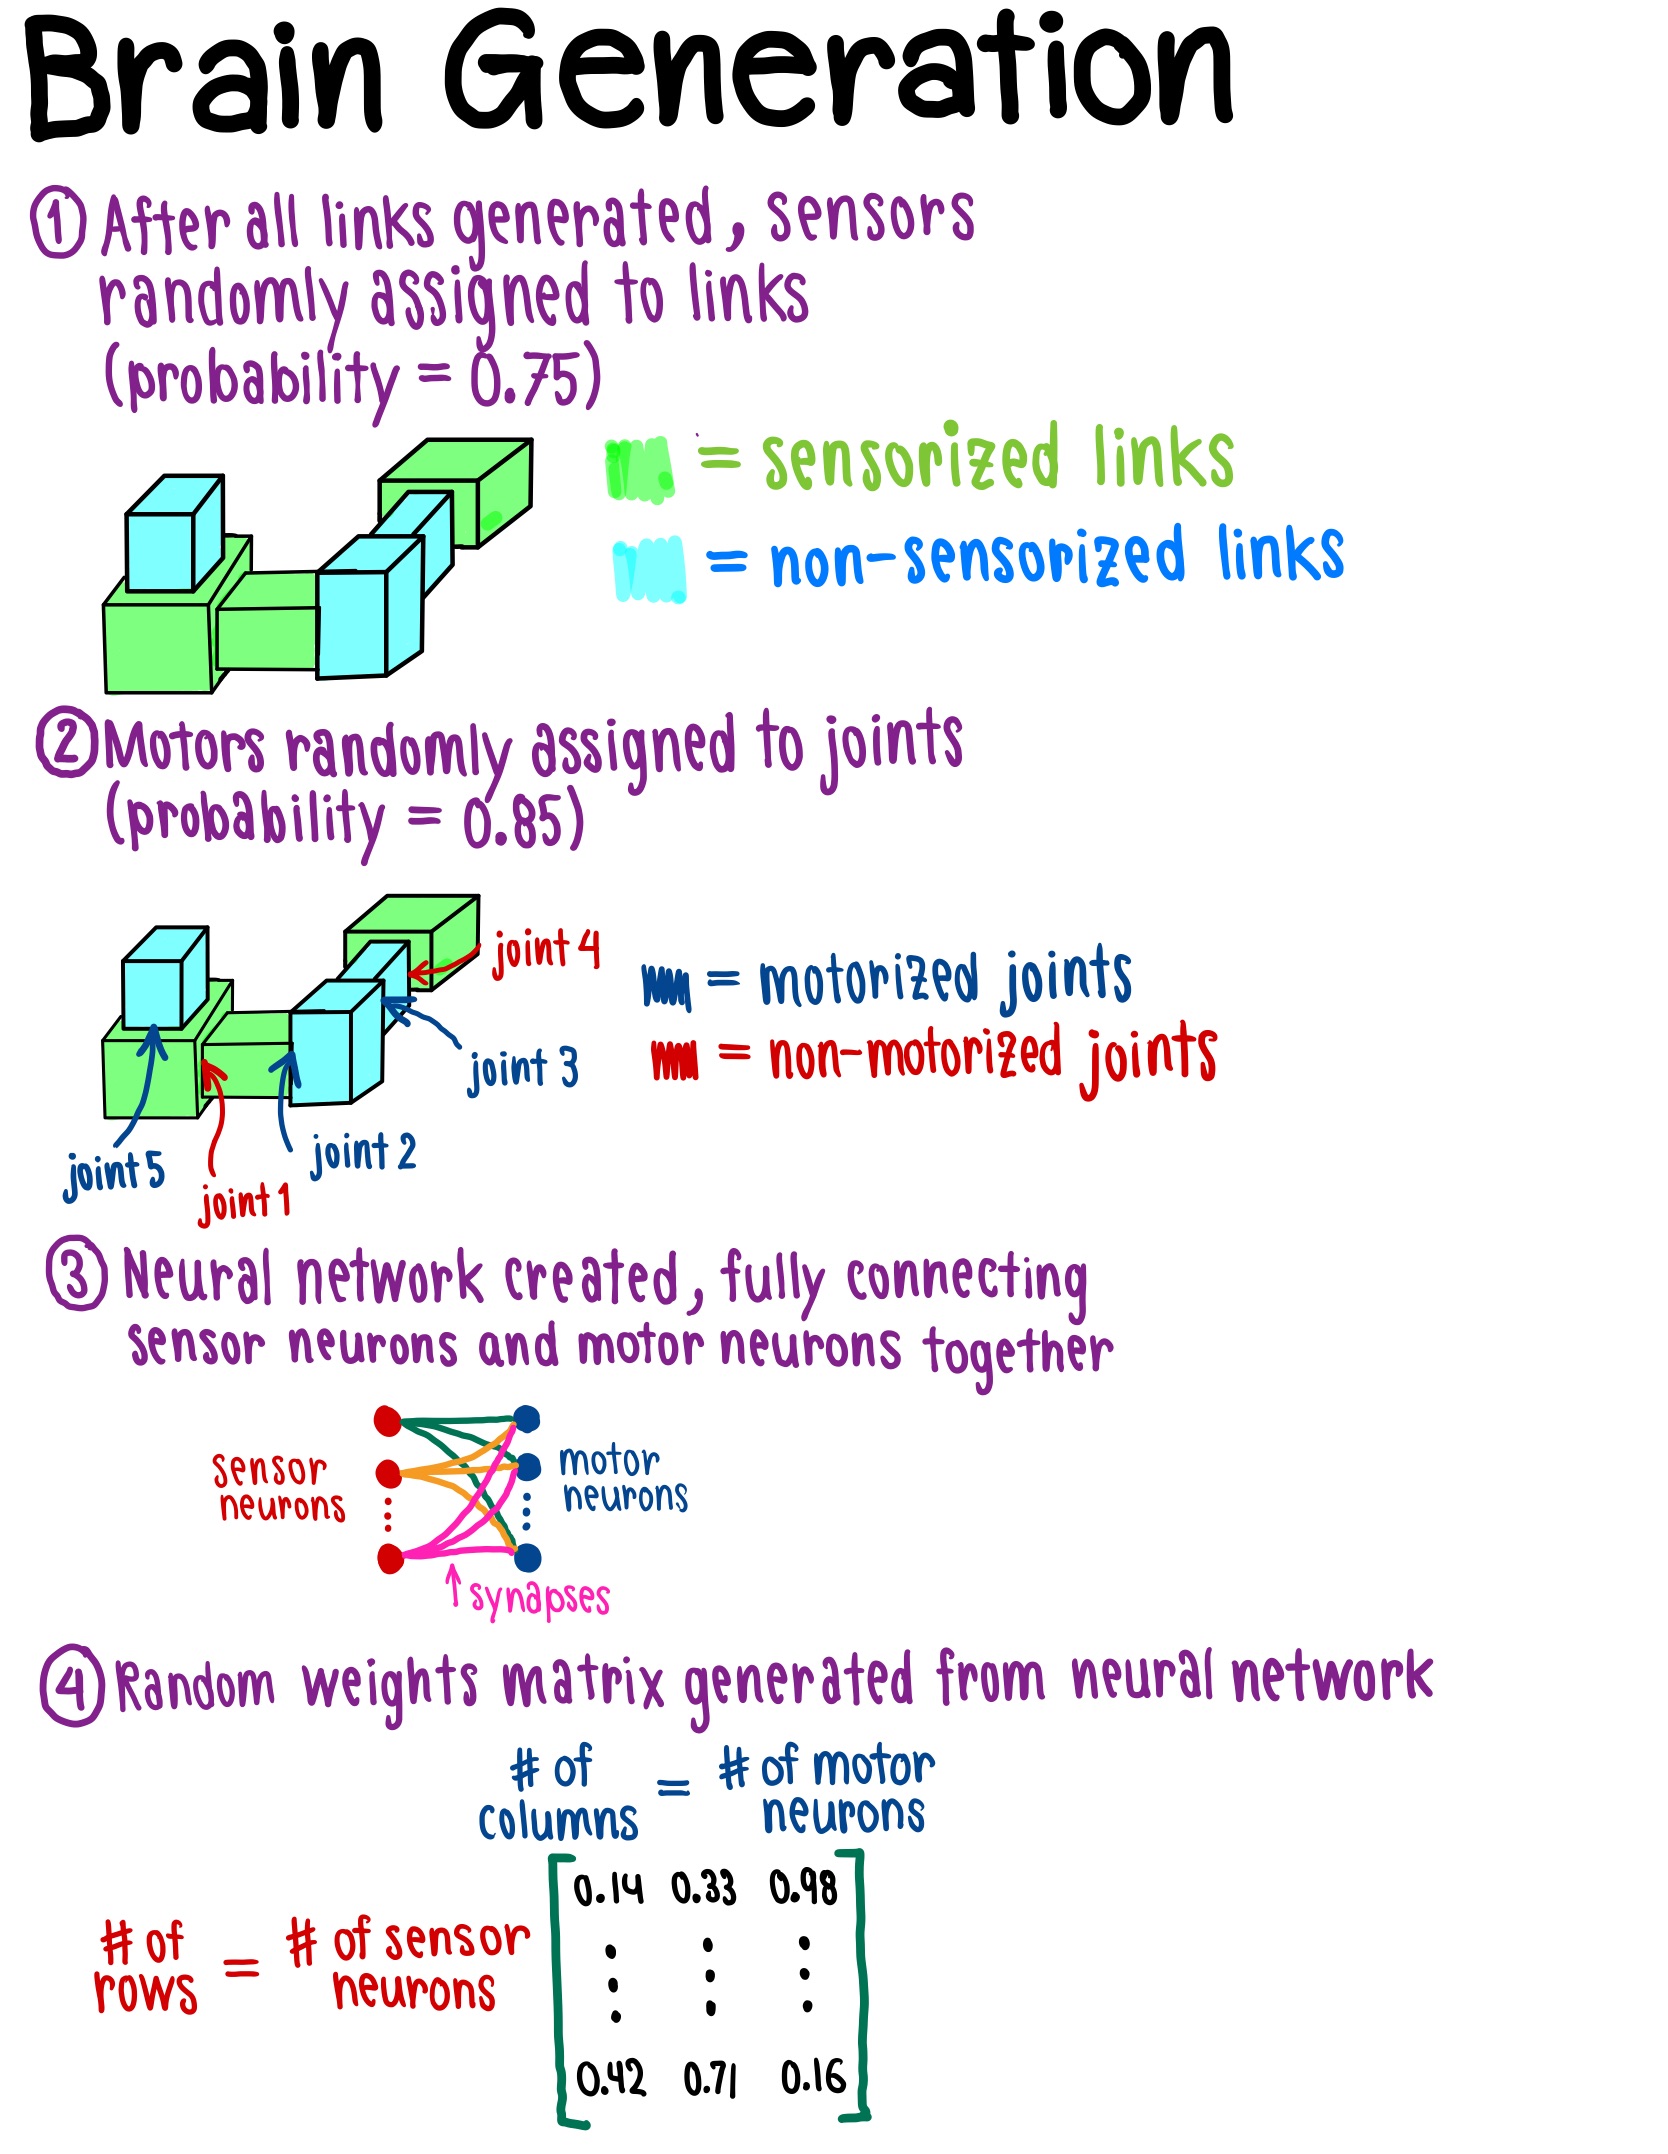 Brain Generation
① After all links generated, sensors
randomly assigned to links
(probability = 0.75)
= sensorized links
= non-sensorized links
② Motors randomly assigned to joints
(probability = 0.85)
joint 4
= motorized joints
= non-motorized joints
joint 3
joint 2
joint 5
joint 1
③ Neural network created, fully connecting
sensor neurons and motor neurons together
sensor
neurons
motor
neurons
synapses
④ Random weights matrix generated from neural network
# of
columns
=
# of motor
neurons
# of
rows
=
# of sensor
neurons
0.14 0.33 0.98
0.42 0.71 0.16